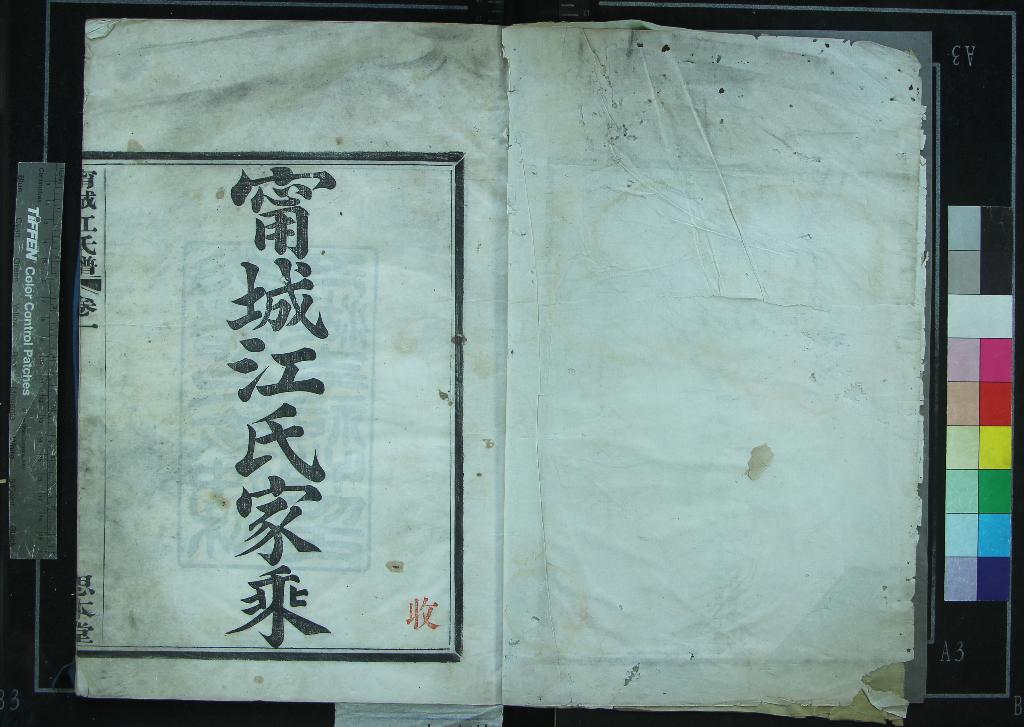 甯城江氏家乘
收
甯城江氏譜 卷一
思本堂
TIFFEN Color Control Patches
A3
A3